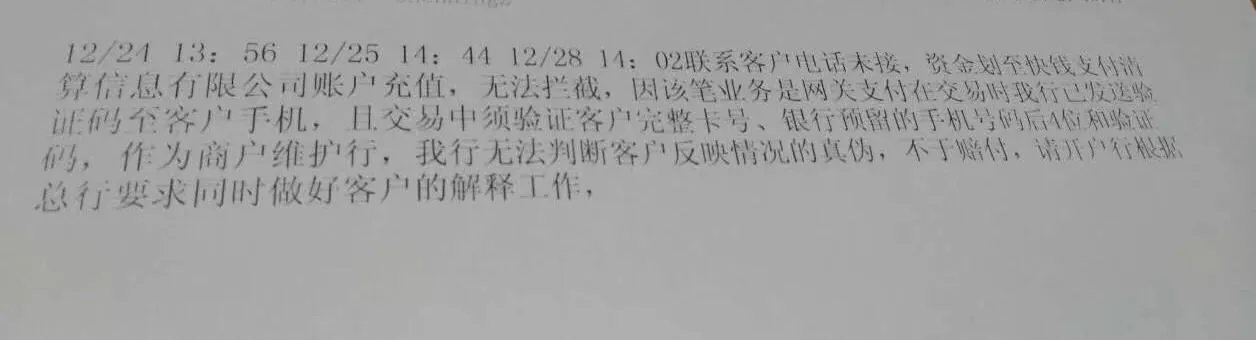 12/24 13：56 12/25 14：44 12/28 14：02联系客户电话未接，资金划至快钱支付清
算信息有限公司账户充值，无法拦截，因该笔业务是网关支付在交易时我行已发送验
证码至客户手机，且交易中须验证客户完整卡号、银行预留的手机号码后4位和验证
码，作为商户维护行，我行无法判断客户反映情况的真伪，不予赔付，请开户行根据
总行要求同时做好客户的解释工作，